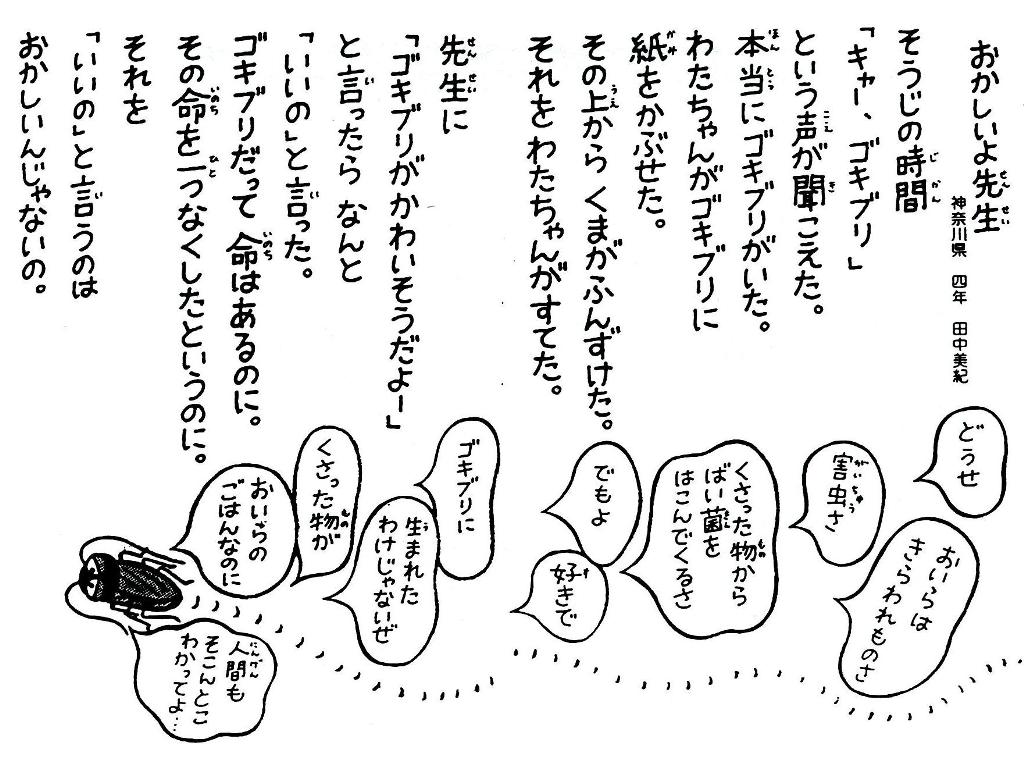 おかしいよ先生
神奈川県 四年 田中美紀
そうじの時間
「キャー、ゴキブリ」
という声が聞こえた。
本当にゴキブリがいた。
わたちゃんがゴキブリに
紙をかぶせた。
その上からくまがふんずけた。
それをわたちゃんがすてた。
先生に
「ゴキブリがかわいそうだよー」
と言ったらなんと
「いいの」と言った。
ゴキブリだって命はあるのに。
その命を一つなくしたというのに。
それを
「いいの」と言うのは
おかしいんじゃないの。
どうせ
おいらは
きらわれものさ
害虫さ
くさった物から
ばい菌を
はこんでくるさ
でもよ
好きで
ゴキブリに
生まれた
わけじゃないぜ
くさった物が
おいらの
ごはんなのに
人間も
そこんとこ
わかってよ…